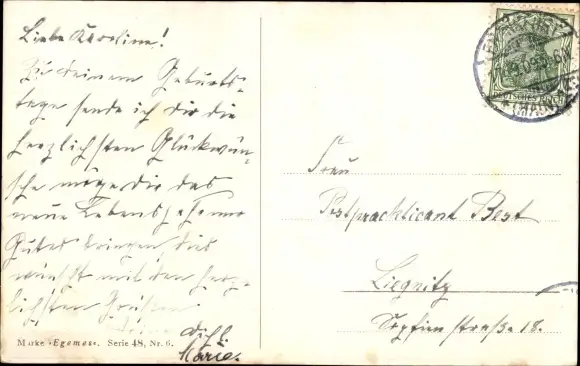 Liebe Karoline!
Zu deinem Geburts-
tage sende ich dir die
herzlichsten Glückwün-
sche möge dir das
neue Lebensjahr nur
Gutes bringen, dies
wünscht mit den herz-
lichsten Grüßen
Marie.
Marke »Egemes«. Serie 48, Nr. 6.
DEUTSCHES REICH
Frau
Postpraktikant Best
Liegnitz
Sophienstraße 18.